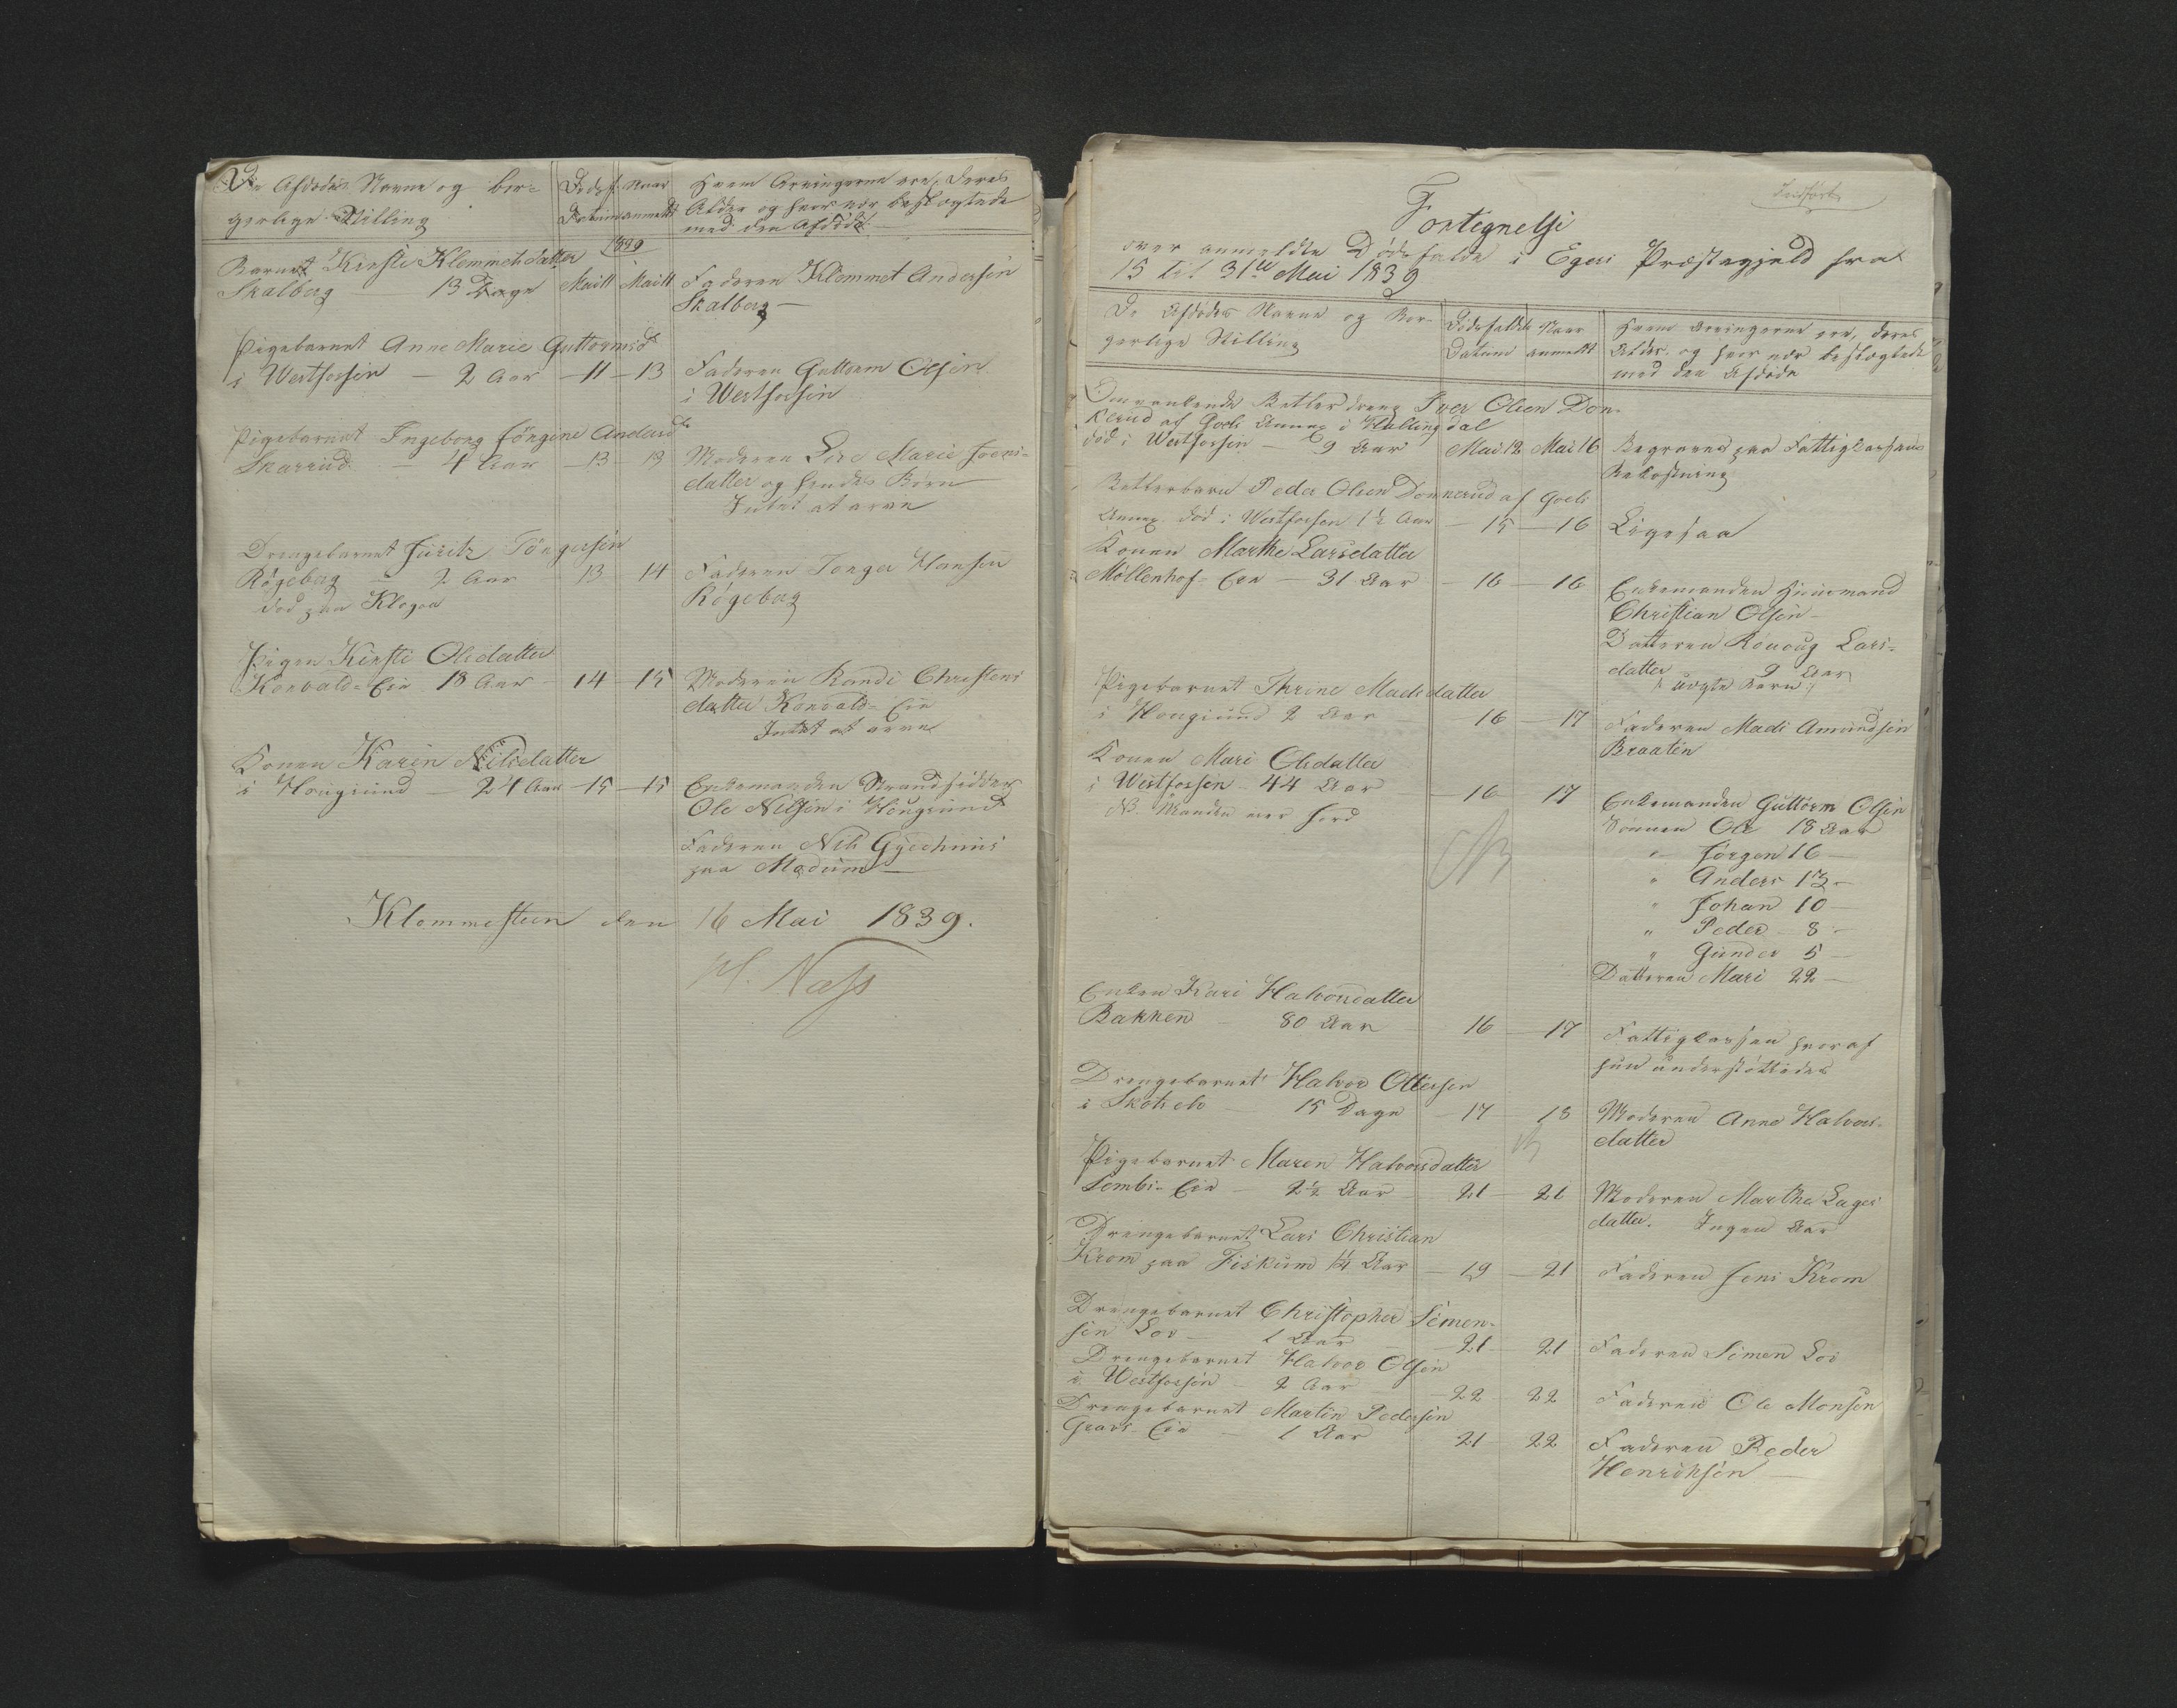 De Afdødes Navne og bor=
gerlige Stilling
Dødsf.
Datum
Naar
anmeldt
Hvem Arvingerne ere, deres
Alder og hvor nær beslægtede
med den Afdøde
1839
Barnet Kirsti Klemmetsdatter
Skalberg 13 Dage Mai 11 Mai 11 Faderen Klemmet Andersen
Skalberg
Pigebarnet Anne Marie Guttormsd
i Westfossen - 2 Aar - 11 - 13 Faderen Guttorm Olsen
i Westfossen
Pigebarnet Ingeborg Jörgine Andersd
Skarrud - 4 Aar - 13 - 13 Moderen Marie Jens=
datter og hendes Børn
Intet at arve
Drengebarnet
Røgeberg - 2 Aar 13 14 Faderen Hansen
død paa Røgeberg
Pigen Kirsti Olsdatter
Eie 18 Aar - 14 - 15 Moderen Randi Christens
datter Eie
Intet at arve
Konen Karen Nilsdatter
i Hougsund - 24 Aar - 15 - 15 Enkemanden Strandsidder
Ole Nilsen i Hougsund
Faderen Nils
paa Modum
den 16 Mai 1839.
Indført
Fortegnelse
over anmeldte Dødsfalde i Egers Præstegjeld fra
15 til 31te Mai 1839
De Afdødes Navne og Bor-
gerlige Stilling
Dødsfaldets
Datum
Naar
anmeldt
Hvem Arvingerne ere, deres
Alder og hvor nær beslægtede
med den Afdøde
Omvankende Betler dreng Iver Olsen Don-
nerud af Goels Annex i Hallingdal
død i Westfossen - 9 Aar Mai 12 Mai 16 Begraves paa Fattigkassens
Bekostning
Betlerbarn Peder Olsen Donnerud af Goels
Annex død i Westfossen 1½ Aar - 15 - 16 Ligesaa
Konen Marthe Larsdatter
Möllenhof-Eie - 31 Aar - 16 - 16 Enkemanden Huusmand
Christian Olsen -
Datteren Lars=
datter 9 Aar
uægte Barn
Pigebarnet Thrine Madsdatter
i Hougsund 2 Aar 16 - 17 Faderen Mads Amundsen
Braaten
Konen Mari Olsdatter
i Westfossen - 44 Aar - 16 - 17 Enkemanden Guttorm Olsen
NB. Manden var
Sønnen Ole 18 Aar
NB
" Jörgen 16 -
" Anders 13 -
" Johan 10 -
" Peder 8 -
" Gunder 5 -
Datteren Mari 22 -
Enken Kari Halvorsdatter
Bakken 80 Aar 16 - 17 Fattigkassen hvoraf
hun understøttedes
Drengebarnet Halvor Ottersen
i Skotselv 15 Dage - 17 - 18 Moderen Anne Halvors-
datter
NB
Pigebarnet Maren Halvorsdatter
Sembs-Eie - 2½ Aar 21 - 21 Moderen Marthe Lages
datter. Ingen Aar
Drengebarnet Lars Christian
Krom paa Fiskum 1¼ Aar - 19 - 21 Faderen Jens Krom
Drengebarnet Christopher Simen-
sen Loe - 1 Aar 21 - 21 Faderen Simen Loe
Drengebarnet Halvor Olsen
i Westfossen - 2 Aar - 22 - 22 Faderen Ole Monsen
Drengebarnet Martin Pedersen
Eie - 1 Aar 21 - 22 Faderen Peder
Henriksen